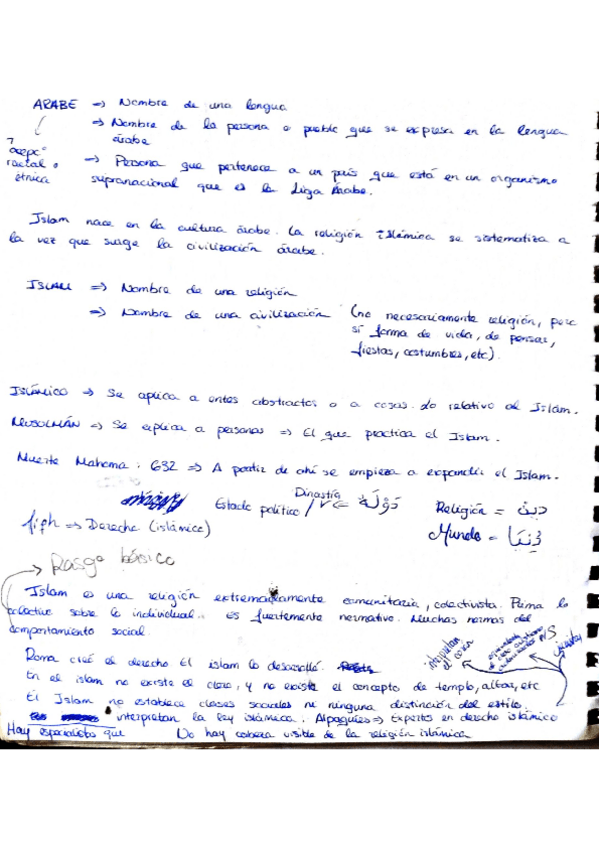 ARABE => Nombre de una lengua
=> Nombre de la persona o pueblo que se expresa en la lengua
árabe
racial o
étnica
=> Persona que pertenece a un país que está en un organismo
supranacional que es la Liga Árabe.
Islam nace en la cultura árabe. La religión islámica se sistematiza a
la vez que surge la civilización árabe.
ISLAM => Nombre de una religión
=> Nombre de una civilización (no necesariamente religión, pero
sí forma de vida, de pensar,
fiestas, costumbres, etc).
ISLÁMICO => Se aplica a entes abstractos o a cosas. Lo relativo al Islám.
MUSULMÁN => Se aplica a personas => El que practica el Islam.
Muerte Mahoma: 632 => A partir de ahí se empieza a expandir el Islam.
Estado político / Dinastía <= دَوْلَة
Religión = دين
fiqh => Derecho (islámico)
Mundo = دُنيَا
Rasgo básico
Islam es una religión extremadamente comunitaria, colectivista. Prima lo
colectivo sobre lo individual. es fuertemente normativo. Muchas normas del
comportamiento social.
Roma creó el derecho El islam lo desarrolló.
interpretan
el corán
En el islam no existe el clero, y no existe el concepto de templo, altar, etc
El Islam no establece clases sociales ni ninguna distinción del estilo.
interpretan la ley islámica. Alfaquíes => Expertos en derecho islámico
Hay especialistas que No hay cabeza visible de la religión islámica